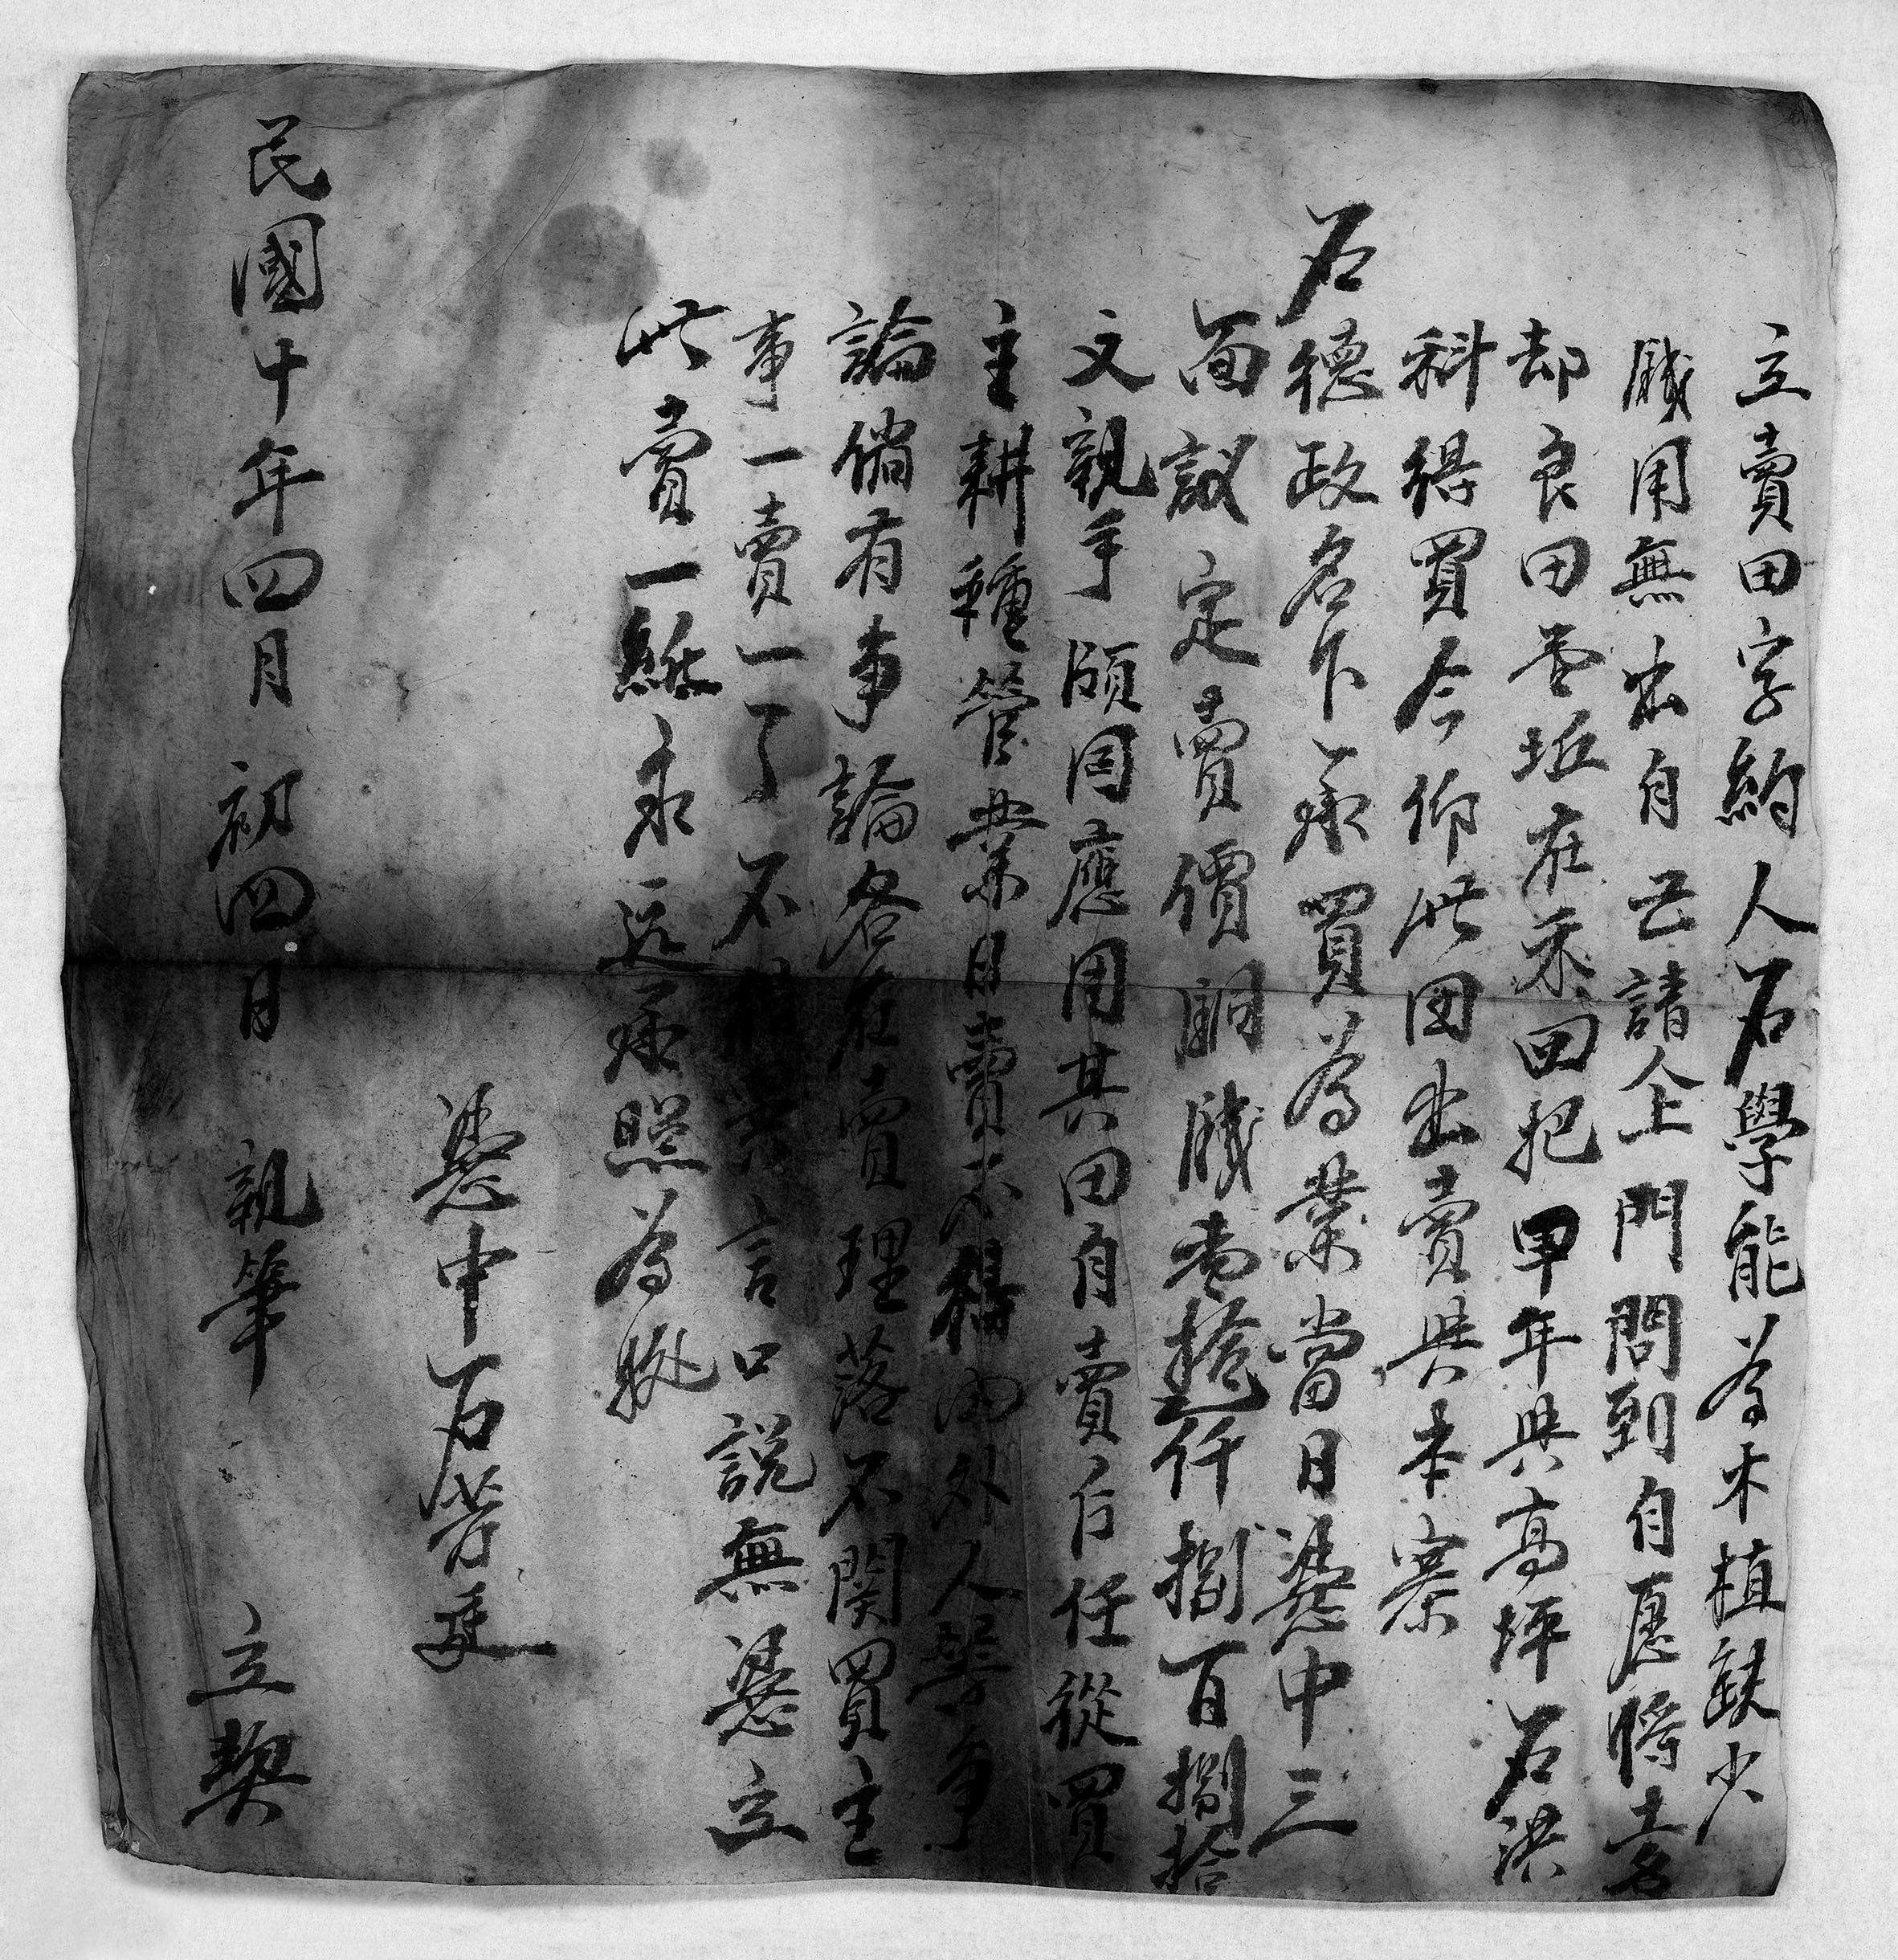 立賣田字約人石學能為木植缺少
賤用無出自己請人上門問到自愿將土名
却良田壹坵在禾田把甲年與高坪石洪
科得買今仰此田出賣與本寨
石德政名下承買為業當日憑中三
面議定賣價銅賤壹拾仟捌百捌拾
文親手領囘應用其田自賣后任從買
主耕種管業日賣不得內外人等爭
論倘有事論各在賣理落不関買主
事一賣一了不得異言口說無憑立
此賣一紙永遠承照為據
憑中石芳廷
民國十年四月初四日 親筆 立契